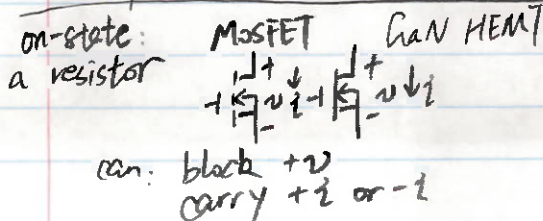 on-state: MOSFET GaN HEMT
a resistor
+ +
v i v i
- -
can: block +v
carry +i or -i